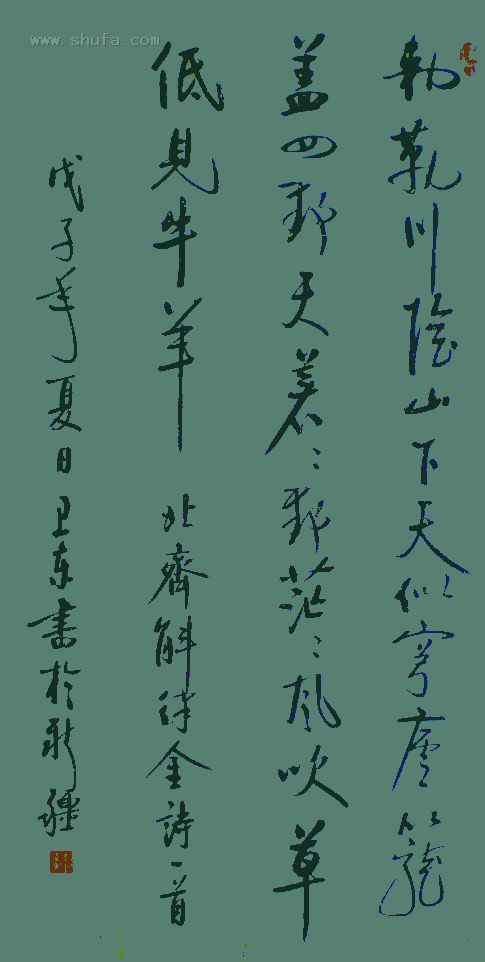 www.shufa.com
勅勒川陰山下天似穹廬籠
盖四野天蒼〻野茫〻風吹草
低見牛羊 北齊斛律金詩一首
戊子年夏日卫东書於新疆